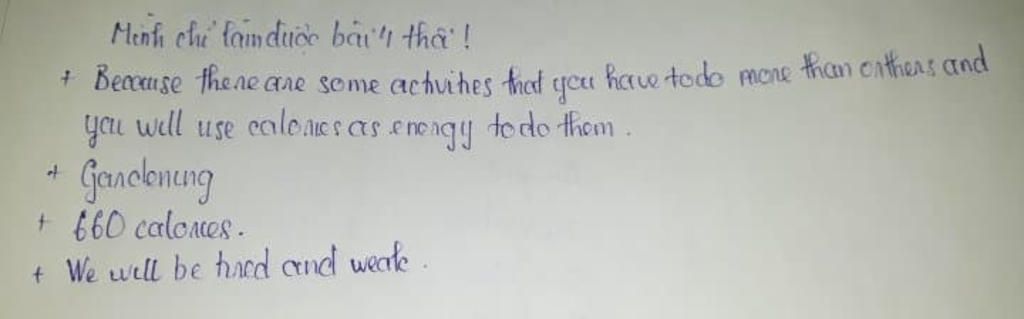 Mình chỉ làm được bài 4 thôi !
+ Because there are some activities that you have to do more than others and
you will use calories as energy to do them .
+ Gardening
+ 660 calories .
+ We will be tired and weak .